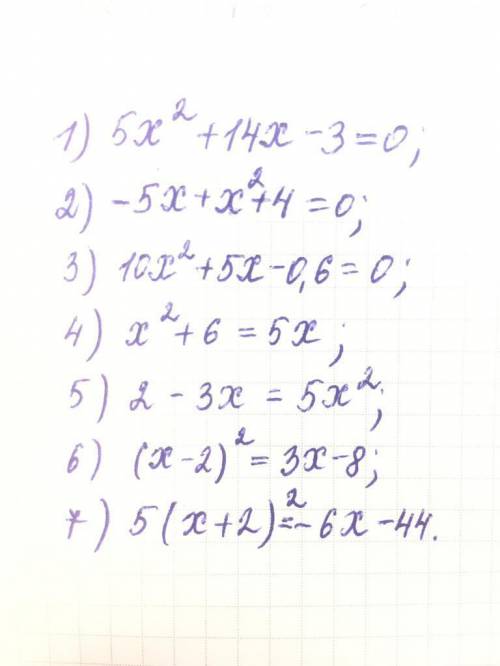 1) 5x² + 14x - 3 = 0;
2) -5x + x² + 4 = 0;
3) 10x² + 5x - 0,6 = 0;
4) x² + 6 = 5x;
5) 2 - 3x = 5x²;
6) (x - 2)² = 3x - 8;
7) 5(x + 2)² = -6x - 44.